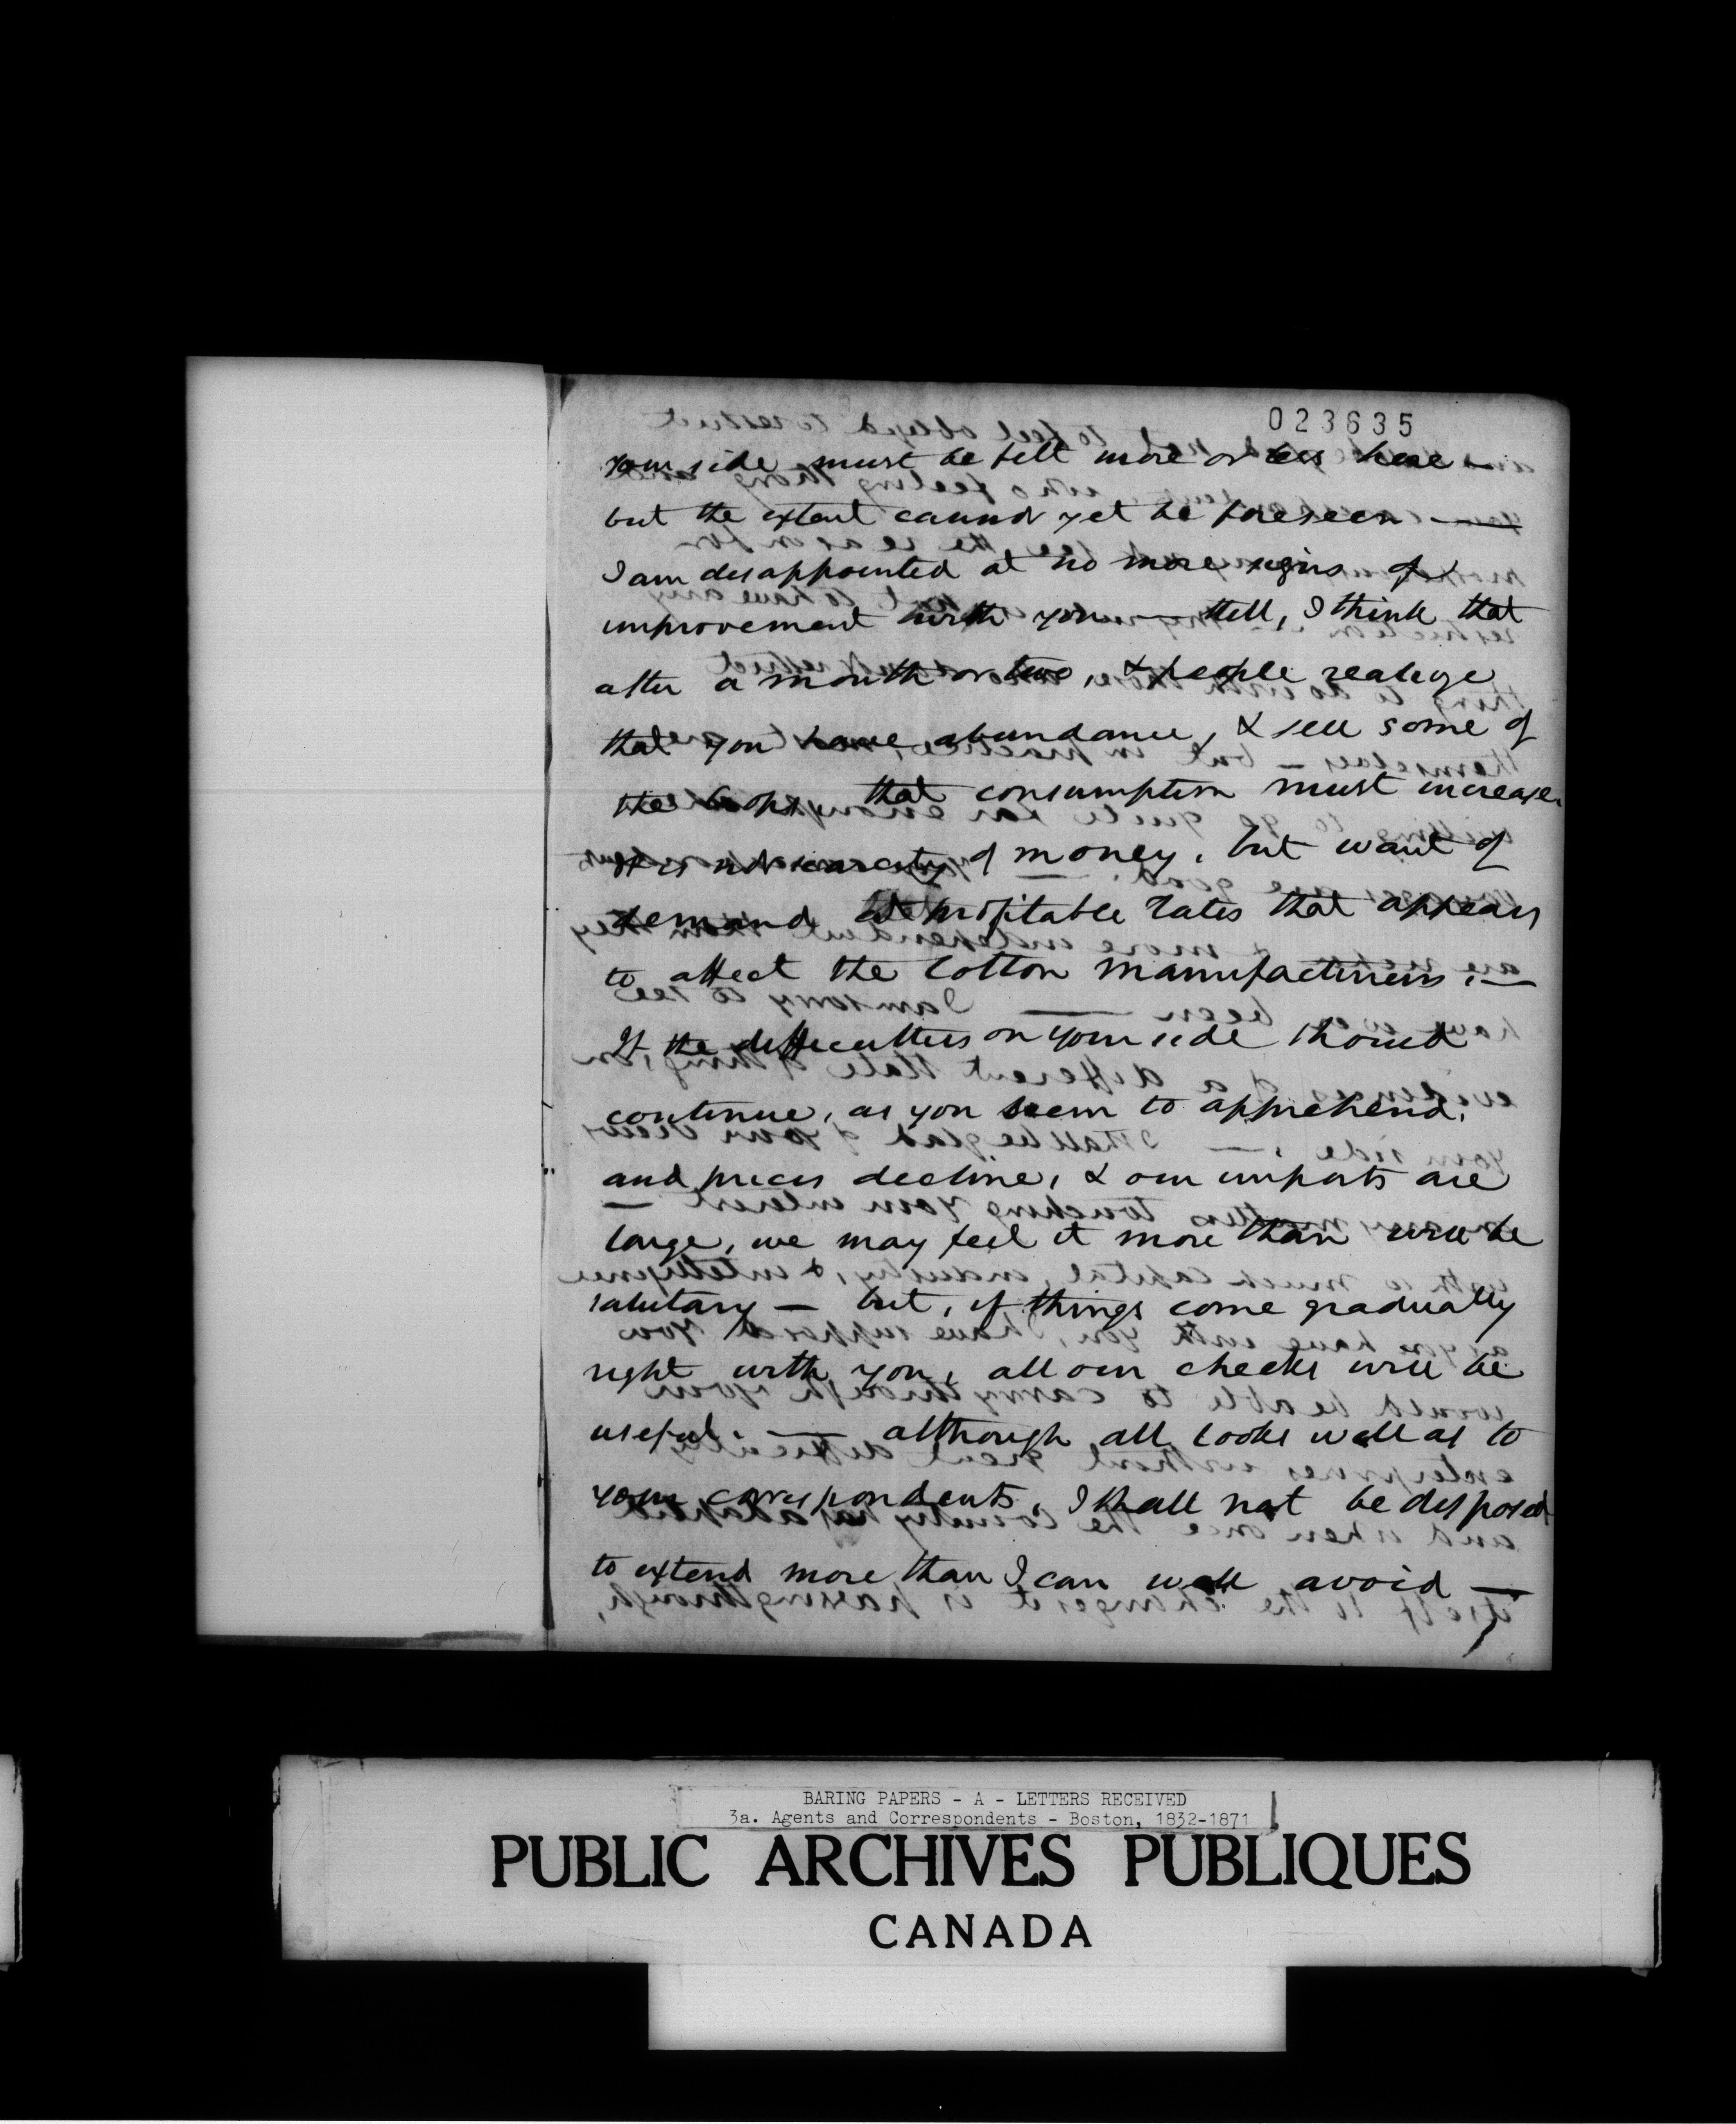 023635
your side must be felt more or less here —
but the extent cannot yet be foreseen —
I am disappointed at no more signs of
improvement with you — still, I think that
after a month or two, & people realize
that you have abundance, & sell some of
the that consumption must increase.
It is not scarcity of money, but want of
demand at profitable rates that appears
to affect the Cotton manufacturers. —
If the difficulties on your side should
continue, as you seem to apprehend,
and prices decline, & our imports are
large, we may feel it more than will be
salutary — but, if things come gradually
right with you, all our checks will be
useful. — although all looks well as to
your correspondents, I shall not be disposed
to extend more than I can well avoid —
BARING PAPERS - A - LETTERS RECEIVED
3a. Agents and Correspondents - Boston, 1832-1871
PUBLIC ARCHIVES PUBLIQUES
CANADA